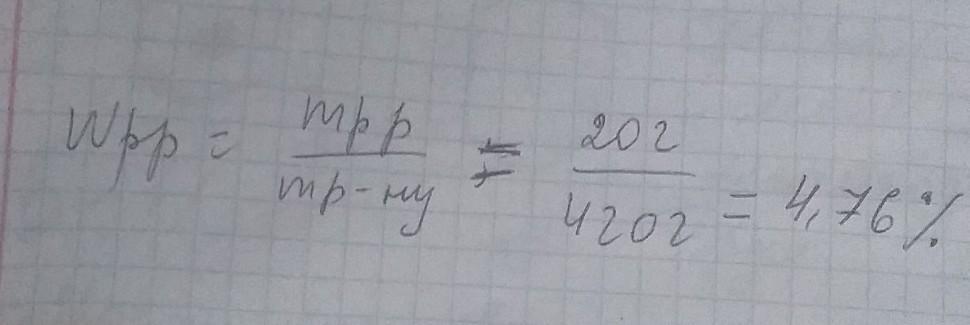 Wрр = mрр / mр-ну = 20г / 420г = 4,76%